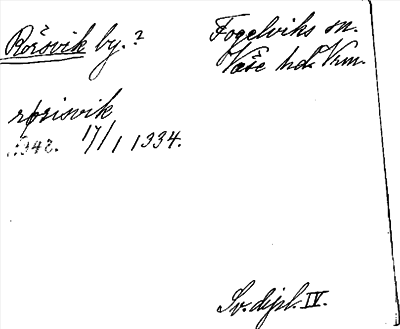 Rorsvik by.?
Fogelviks sn.
Väse hd. Vrm.
rørisvik
1342. 17/1 1334.
Sv. dipl. IV.